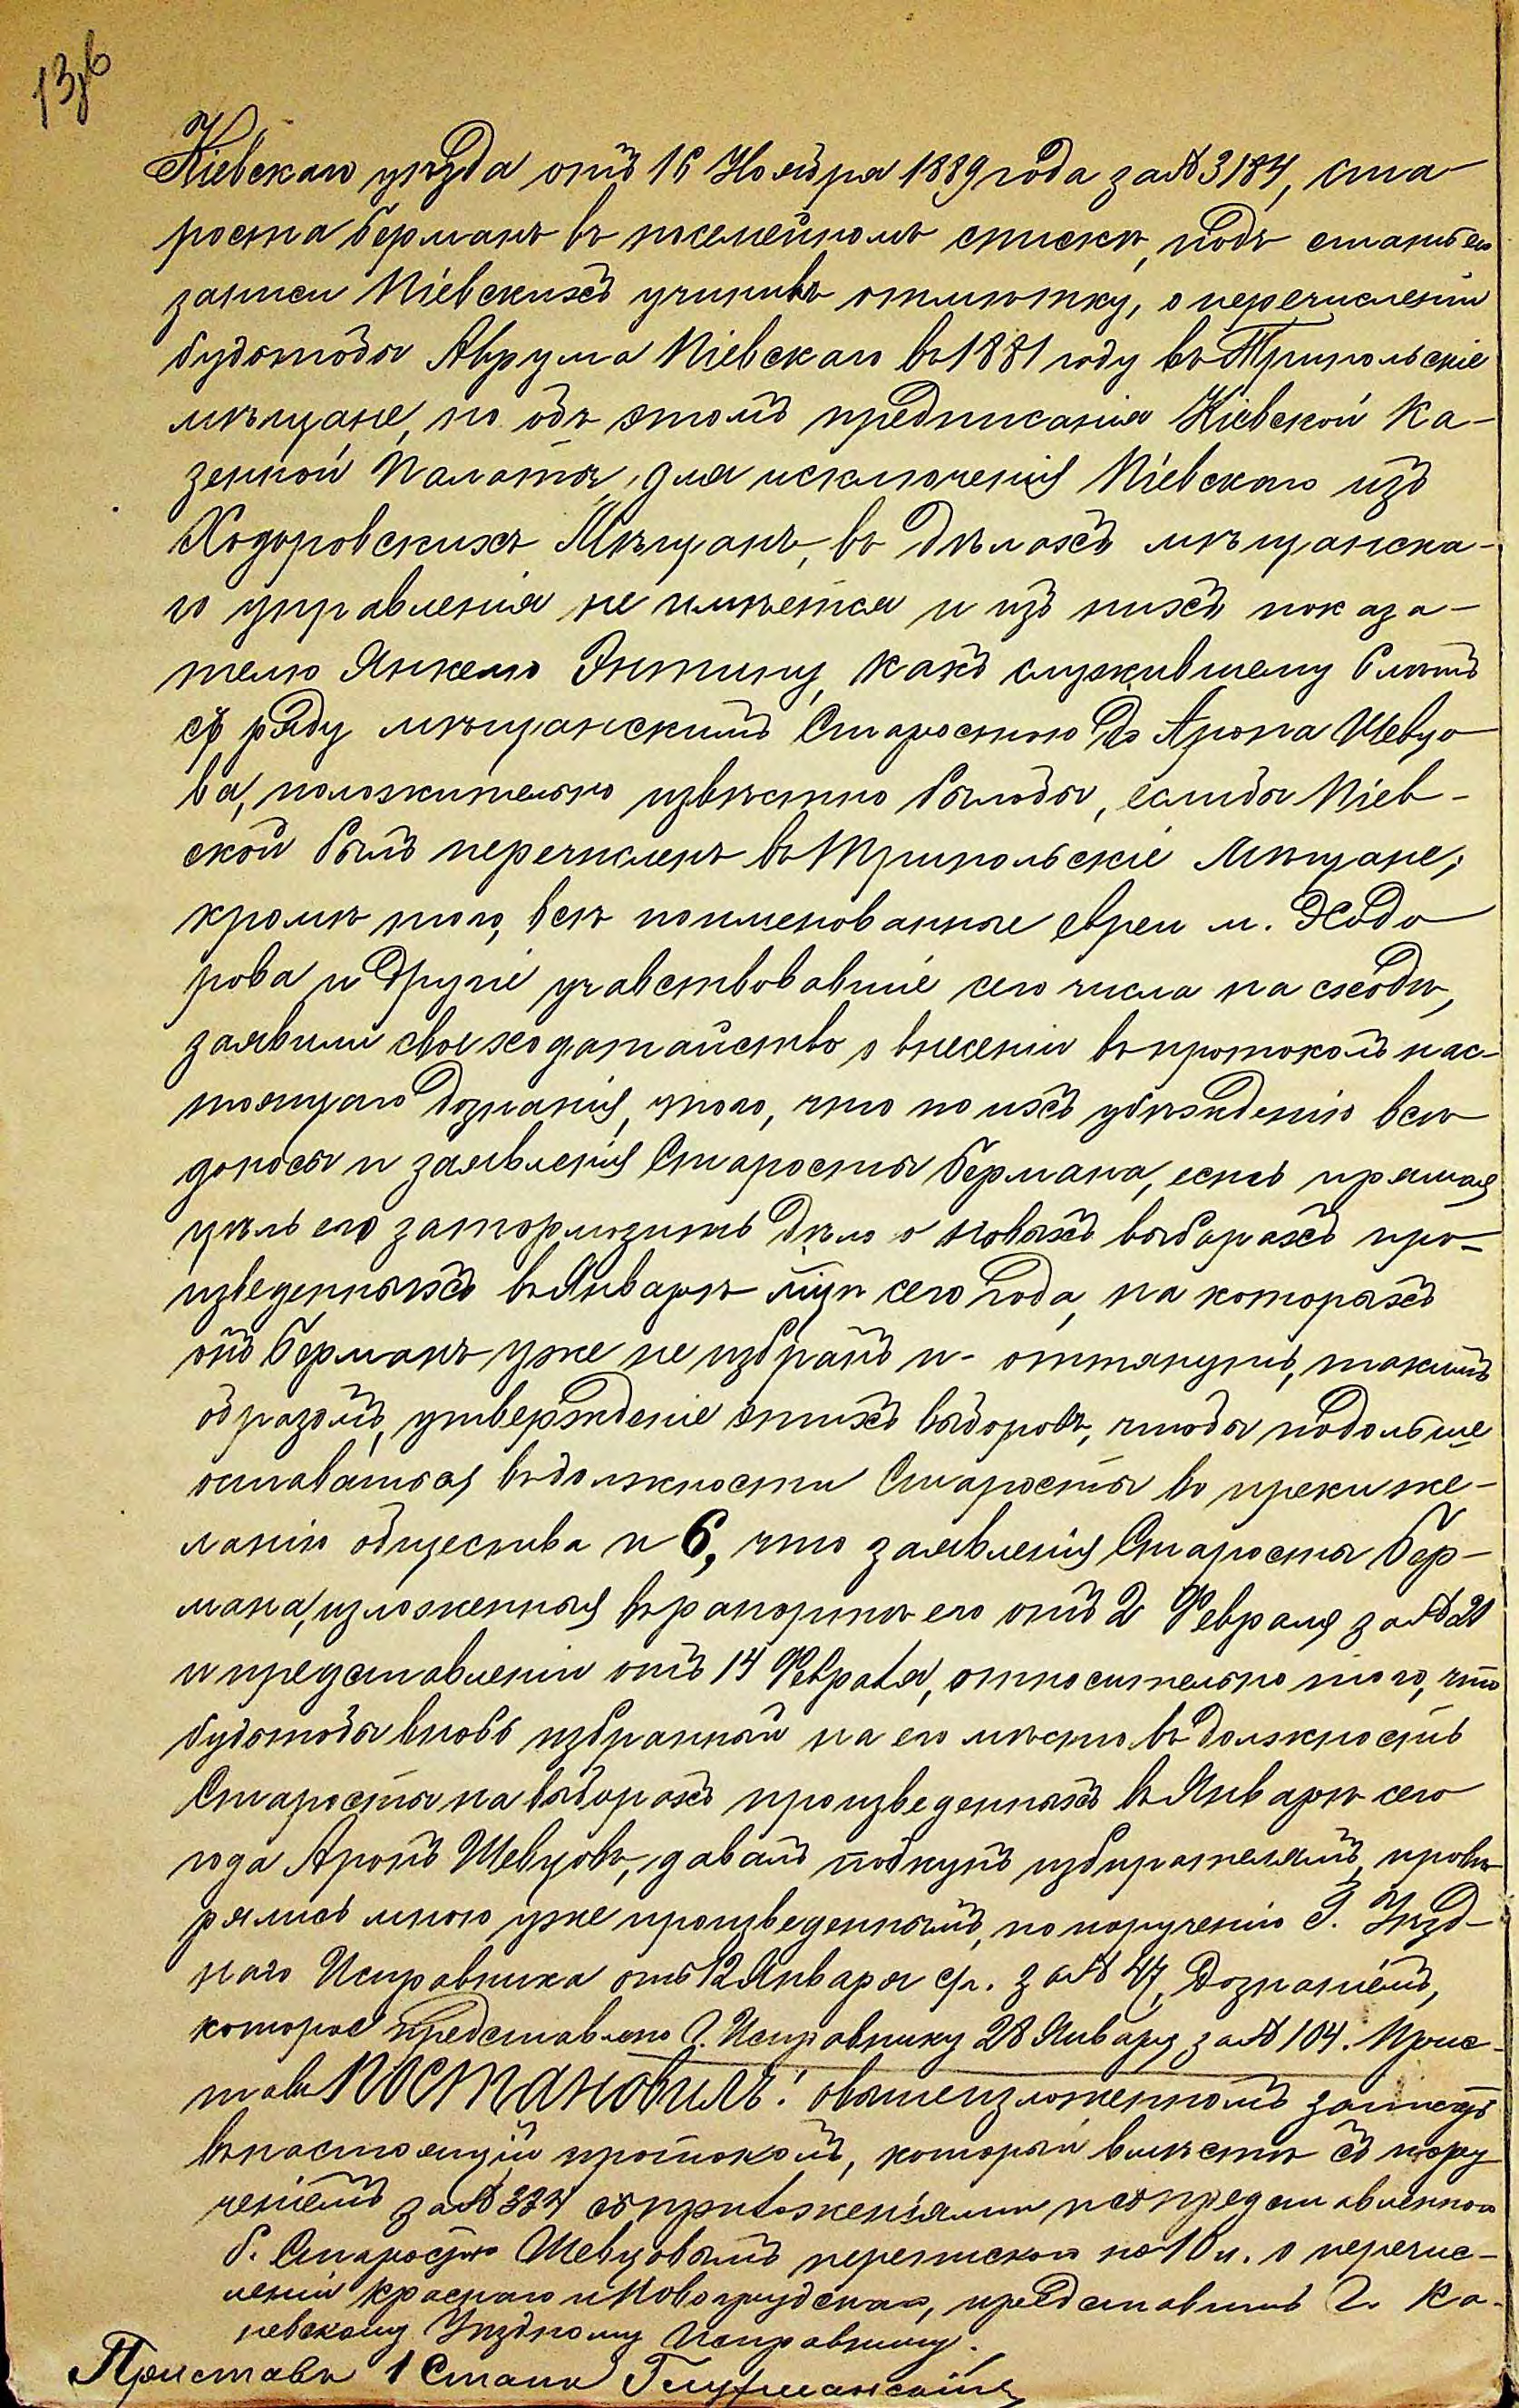 136
Кіевскаго уѣзда отъ 16 Ноября 1889 года за № 3184, ста-
роста Берманъ въ посемейномъ спискѣ, подъ статьею
записи Кіевскихъ учинивъ отмѣтку, о перечисленіи
будтобы Аврума Кіевскаго въ 1881 году въ Трипольскіе
мѣщане, но объ этомъ предписанія Кіевской Ка-
зенной Палаты, для исключенія Кіевскаго изъ
Ходоровскихъ Мѣщанъ, въ дѣлахъ мѣщанска-
го управленія не имѣется и изъ нихъ показа-
телю Янкелю Энтину, какъ служившему 6 лѣтъ
съ ряду мѣщанскимъ Старостою до Арона Шевцо-
ва, положительно извѣстно былобы, еслибы Кіев-
ской былъ перечисленъ въ Трипольскіе Мѣщане;
кромѣ того, всѣ поименованные евреи м. Ходо
рова и другіе учавствовавшіе сего числа на сходѣ,
заявили свое ходатайство о внесеніи въ протоколъ нас-
тоящаго дознанія, того, что по ихъ убѣжденію всѣ
доносы и заявленія Старосты Бермана, есть прямая
цѣль его затормозить дѣло о новыхъ выборахъ про-
изведенныхъ въ Январѣ мцѣ сего года, на которыхъ
онъ Берманъ уже не избранъ и оттянуть, такимъ
образомъ, утвержденіе этихъ выборовъ, чтобы подольше
оставаться въ должности Старосты во преки же-
ланію общества и 6, что заявленія Старосты Бер-
мана, изложенныя въ рапортѣ его отъ 2 Февраля за № 21
и представленіи отъ 14 Февраля, относительно того, что
будтобы вновь избранный на его мѣсто въ должность
Старосты на выборахъ произведенныхъ въ Январѣ сего
года Аронъ Шевцовъ, давалъ подкупъ избирателямъ, провѣ
рялись мною уже произведеннымъ, по порученію Г. Уѣзд-
наго Исправника отъ 12 Января с/г. за № 47, Дознаніемъ,
которое представлено Г. Исправнику 28 Января за № 104. Прис-
тавъ Постановилъ: о вышеизложенномъ записать
въ настоящій протоколъ, который вмѣстѣ съ пору
ченіемъ за № 334 съ приложеніями и съ представленною
б. Старостою Шевцовымъ перепискою на 10 л. о перечис-
леніи Краснаго и Новогрудскаго, представить Г. Ка-
невскому Уѣздному Исправнику.
Приставъ 1 Стана